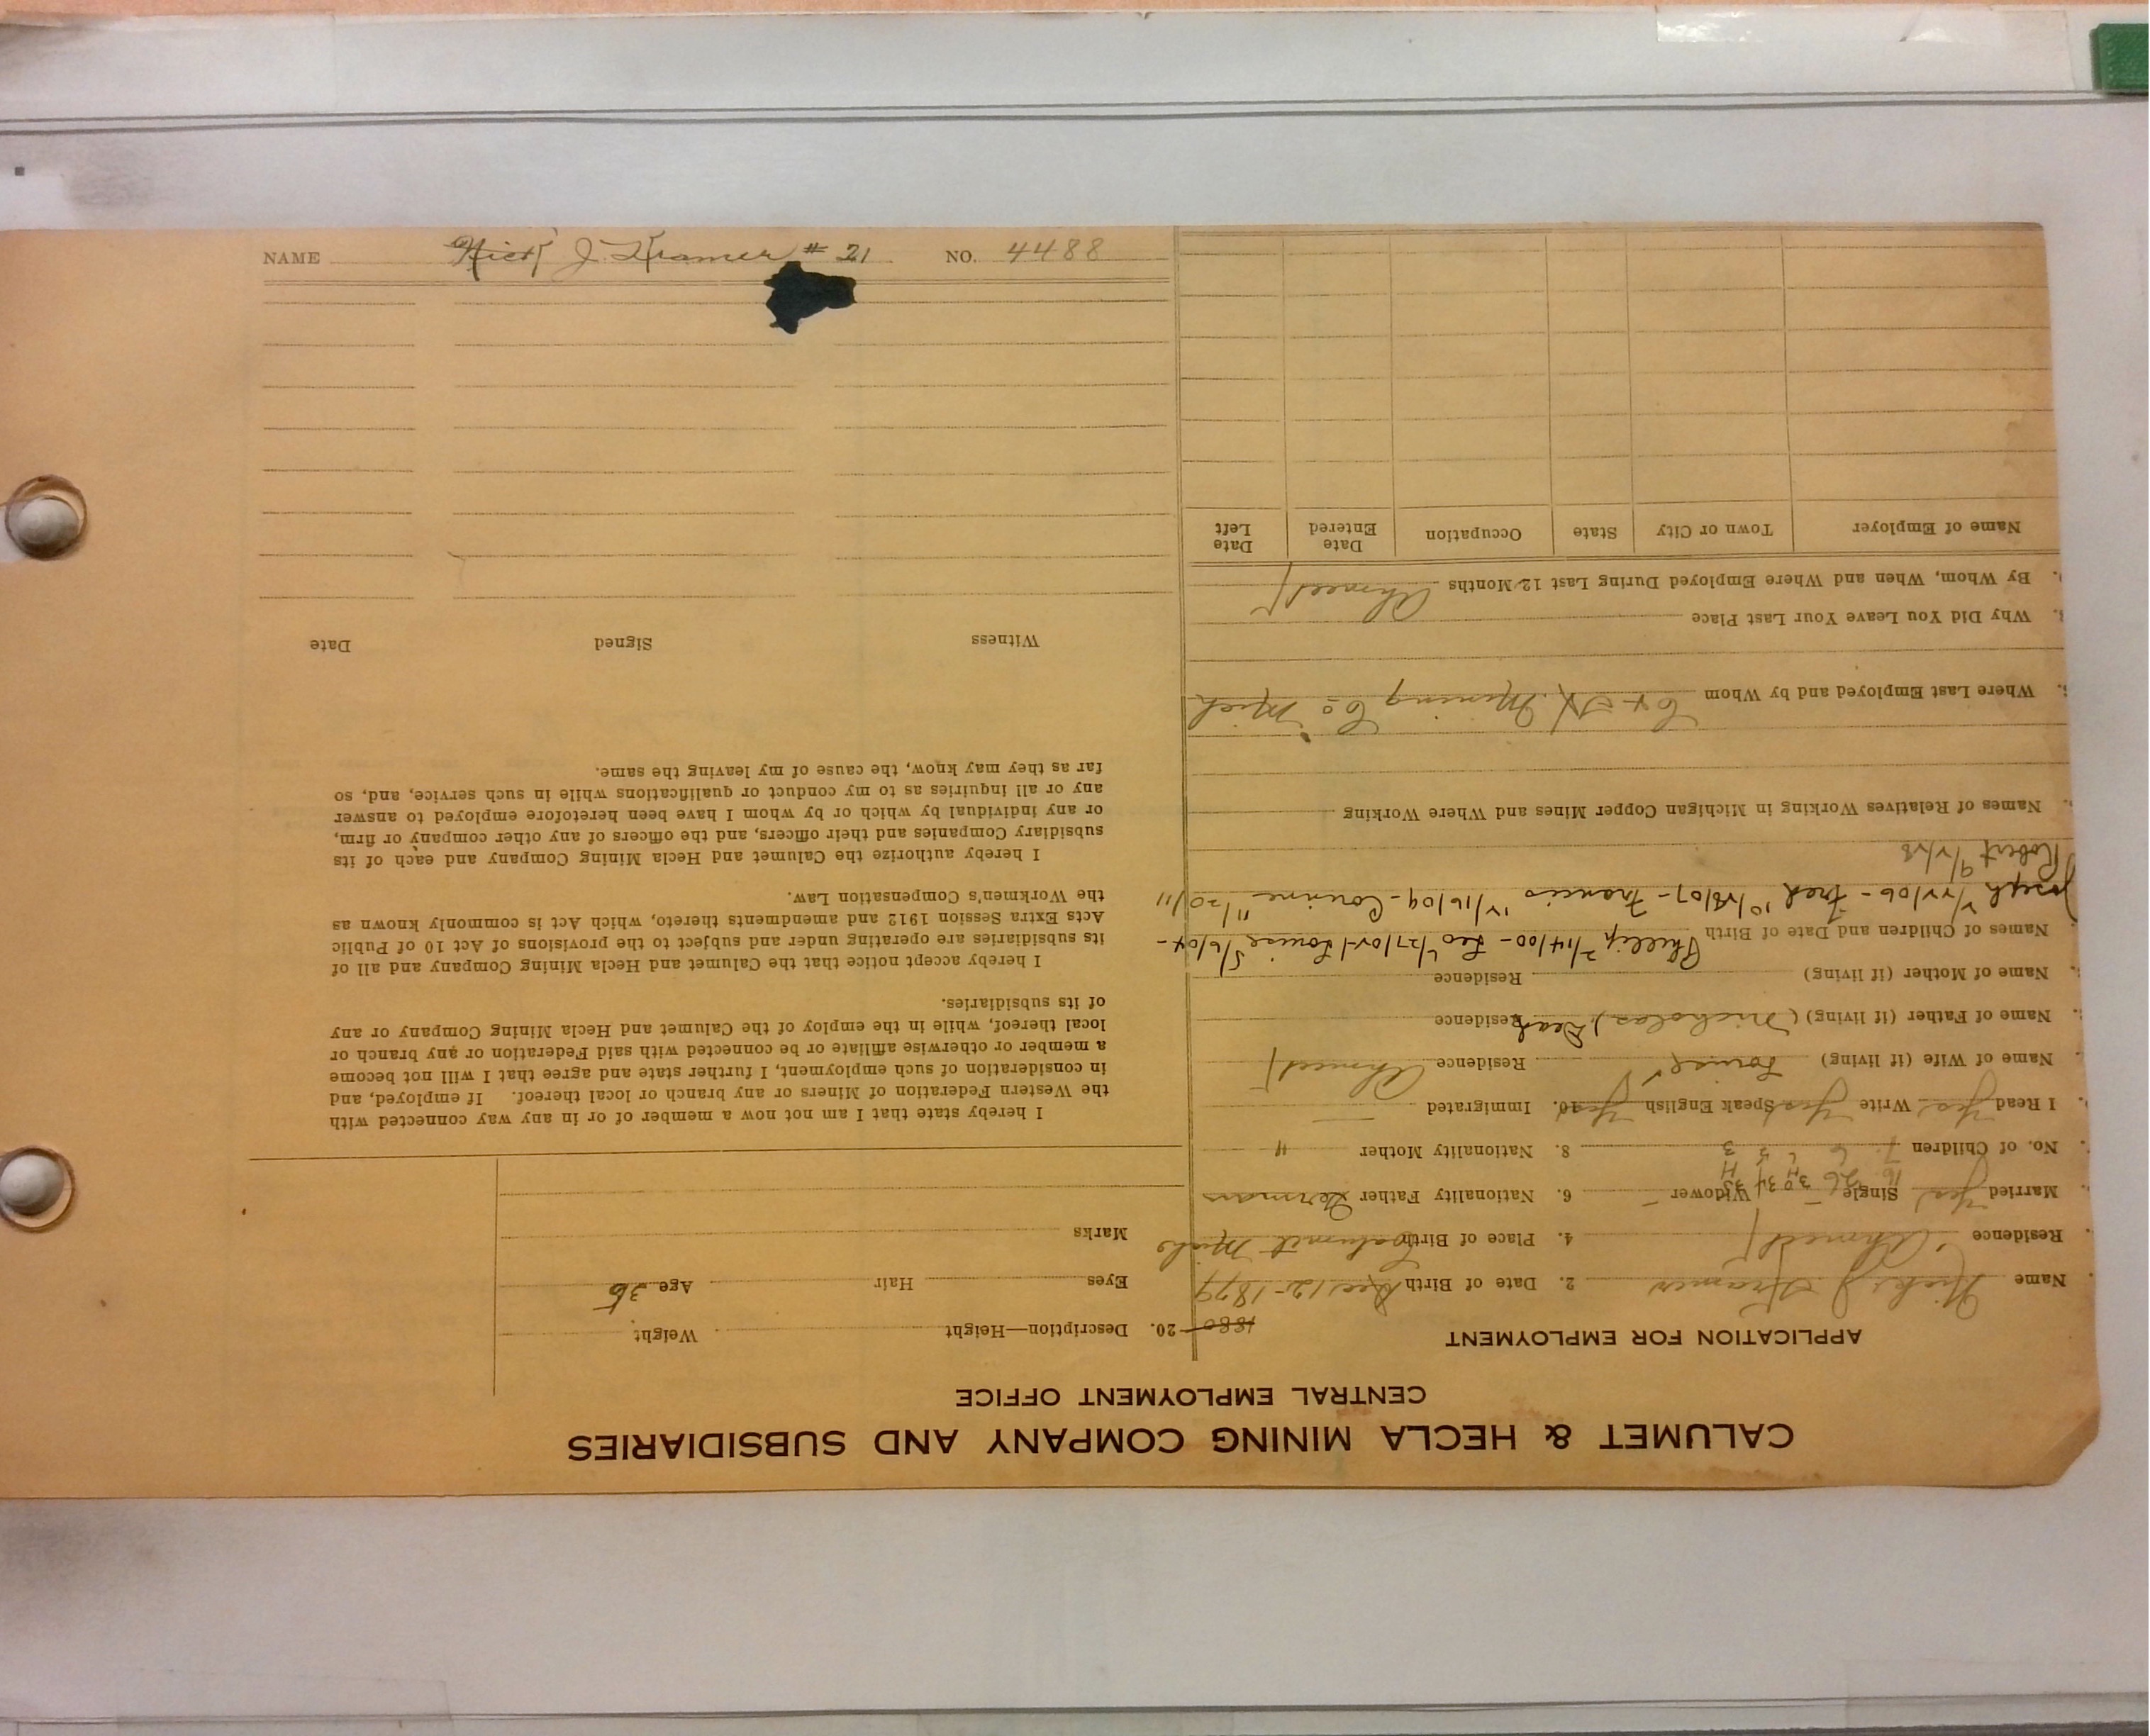 CALUMET & HECLA MINING COMPANY AND SUBSIDIARIES
CENTRAL EMPLOYMENT OFFICE
APPLICATION FOR EMPLOYMENT
1880
Name Nick J Kramer 2. Date of Birth Dec 12-1879
Residence Ahmeek 4. Place of Birth Calumet Mich
Married Yes Single – Widower – 6. Nationality Father German
No. of Children 7 6 5 3 8. Nationality Mother "
I Read Yes Write Yes Speak English Yes 10. Immigrated —
Name of Wife (if living) Louise Residence Ahmeek
Name of Father (if living) (Nicholas) Dead Residence
Name of Mother (if living) Residence
Names of Children and Date of Birth Phillip 2/14/00 - Leo Louise 5/6/04 -
Joseph - Fred - Francis - Corinne 11/20/11
Robert
Names of Relatives Working in Michigan Copper Mines and Where Working
Where Last Employed and by Whom C + H Mining Co Mich
Why Did You Leave Your Last Place
By Whom, When and Where Employed During Last 12 Months Ahmeek
Name of Employer Town or City State Occupation Date Entered Date Left
20. Description—Height Weight
Eyes Hair Age 35
Marks
I hereby state that I am not now a member of or in any way connected with
the Western Federation of Miners or any branch or local thereof. If employed, and
in consideration of such employment, I further state and agree that I will not become
a member or otherwise affiliate or be connected with said Federation or any branch or
local thereof, while in the employ of the Calumet and Hecla Mining Company or any
of its subsidiaries.
I hereby accept notice that the Calumet and Hecla Mining Company and all of
its subsidiaries are operating under and subject to the provisions of Act 10 of Public
Acts Extra Session 1912 and amendments thereto, which Act is commonly known as
the Workmen's Compensation Law.
I hereby authorize the Calumet and Hecla Mining Company and each of its
subsidiary Companies and their officers, and the officers of any other company or firm,
or any individual by which or by whom I have been heretofore employed to answer
any or all inquiries as to my conduct or qualifications while in such service, and, so
far as they may know, the cause of my leaving the same.
Witness Signed Date
NAME Nick J. Kramer # 21 NO. 4488